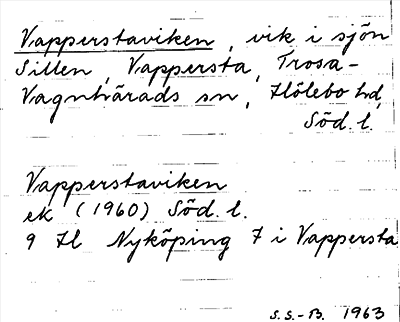 Vapperstaviken, vik i sjön
Sillen, Vappersta, Trosa-
Vagnhärads sn, Hölebo hd,
Söd. l.
Vapperstaviken
ek (1960) Söd. l.
9 H Nyköping 7 i Vappersta
S.S.-B. 1963